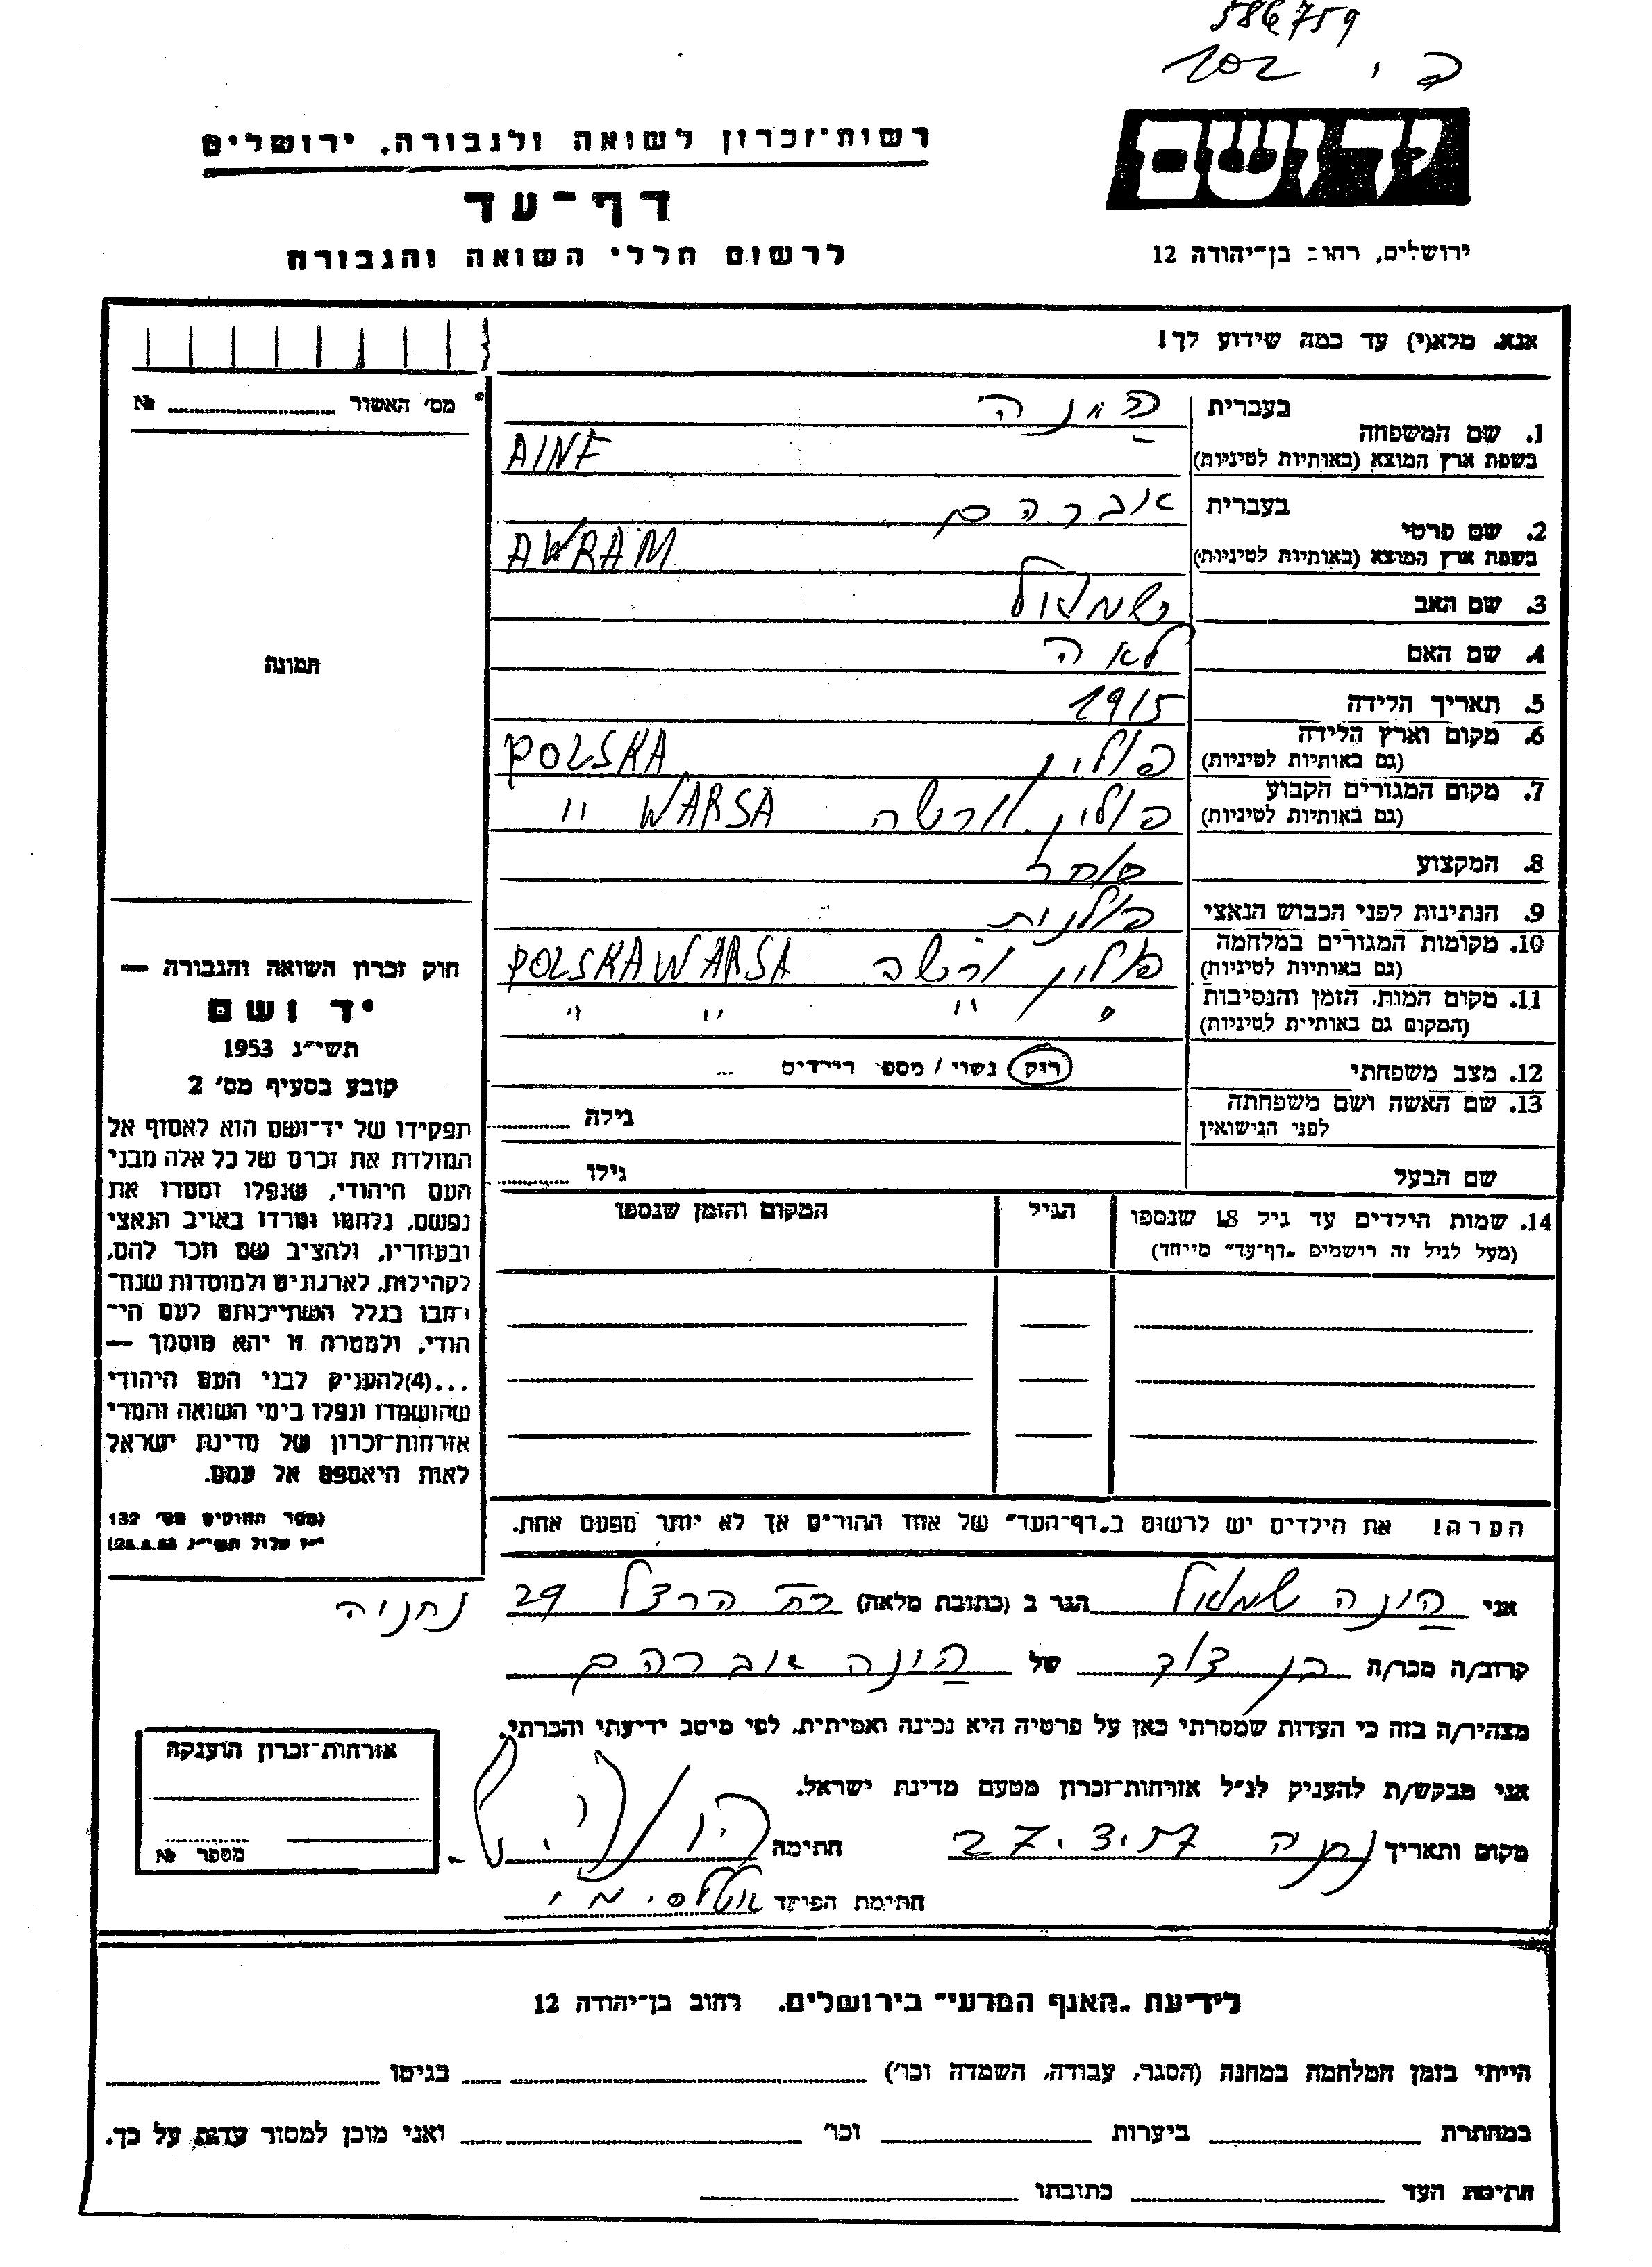 586759
ה י 102
רשות־זכרון לשואה ולגבורה, ירושלים
יד ושם
דף־עד
לרשום חללי השואה והגבורה
ירושלים, רחוב בן־יהודה 12
אנא, מלא(י) עד כמה שידוע לך!
מס' האשור № 
בעברית הינה
1. שם המשפחה
בשפת ארץ המוצא (באותיות לטיניות) AINE
בעברית אברהם
2. שם פרטי
בשפת ארץ המוצא (באותיות לטיניות) AWRAM
3. שם האב שמואל
תמונה
4. שם האם לאה
5. תאריך הלידה 1915
6. מקום וארץ הלידה
(גם באותיות לטיניות) פולין POLSKA
7. מקום המגורים הקבוע
(גם באותיות לטיניות) פולין ורשה WARSA "
8. המקצוע סוחר
9. הנתינות לפני הכבוש הנאצי פולנית
10. מקומות המגורים במלחמה
(גם באותיות לטיניות) פולין ורשה POLSKA WARSA
11. מקום המות, הזמן והנסיבות
(המקום גם באותיות לטיניות) " " " "
12. מצב משפחתי רווק נשוי / מספר הילדים
13. שם האשה ושם משפחתה
לפני הנישואין גילה
שם הבעל גילו
14. שמות הילדים עד גיל 18 שנספו הגיל המקום והזמן שנספו
(מעל לגיל זה רושמים "דף־עד" מיוחד)
חוק זכרון השואה והגבורה —
יד ושם
תשי"ג 1953
קובע בסעיף מס' 2
תפקידו של יד־ושם הוא לאסוף אל
המולדת את זכרם של כל אלה מבני
העם היהודי, שנפלו ומסרו את
נפשם, נלחמו ומרדו באויב הנאצי
ובעוזריו, ולהציב שם וזכר להם,
לקהילות, לארגונים ולמוסדות שנח־
רבו בגלל השתייכותם לעם הי־
הודי, ולמטרה זו יהא מוסמך —
...(4)להעניק לבני העם היהודי
שהושמדו ונפלו בימי השואה והמרי
אזרחות־זכרון של מדינת ישראל
לאות היאספם אל עמם.
(ספר החוקים מס' 132
י"ז אלול תשי"ג 28.8.53)
הערה! את הילדים יש לרשום ב"דף־העד" של אחד ההורים אך לא יותר מפעם אחת.
אני הינה שמואל הגר ב (כתובת מלאה) רח הרצל 29 נתניה
קרוב/ה מכר/ה בן דוד של הינה אברהם
מצהיר/ה בזה כי העדות שמסרתי כאן על פרטיה היא נכונה ואמיתית, לפי מיטב ידיעתי והכרתי.
אני מבקש/ת להעניק לנ"ל אזרחות־זכרון מטעם מדינת ישראל.
מקום ותאריך נתניה 27.3.57 חתימה
חתימת הפוקד
אזרחות־זכרון הוענקה
מספר №
לידיעת "האגף המדעי" בירושלים, רחוב בן־יהודה 12
הייתי בזמן המלחמה במחנה (הסגר, עבודה, השמדה וכו') בגיטו
במחתרת ביערות וכו' ואני מוכן למסור עדות על כך.
חתימת העד כתובתו